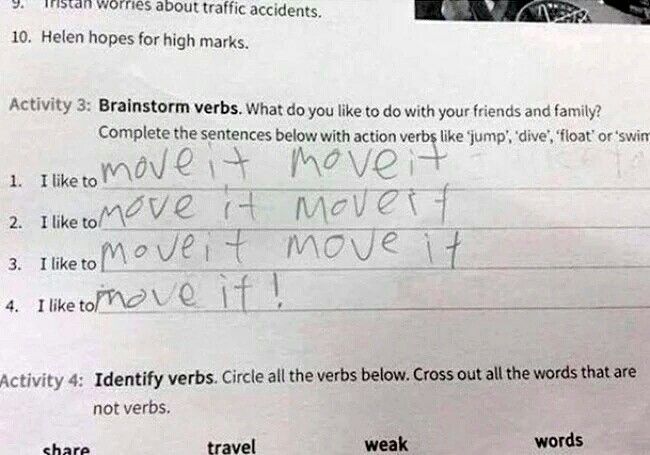 9. Tristan worries about traffic accidents.
10. Helen hopes for high marks.
Activity 3: Brainstorm verbs. What do you like to do with your friends and family?
Complete the sentences below with action verbs like 'jump', 'dive', 'float' or 'swim
1. I like to move it move it
2. I like to move it move it
3. I like to move it move it
4. I like to move it!
Activity 4: Identify verbs. Circle all the verbs below. Cross out all the words that are
not verbs.
share travel weak words